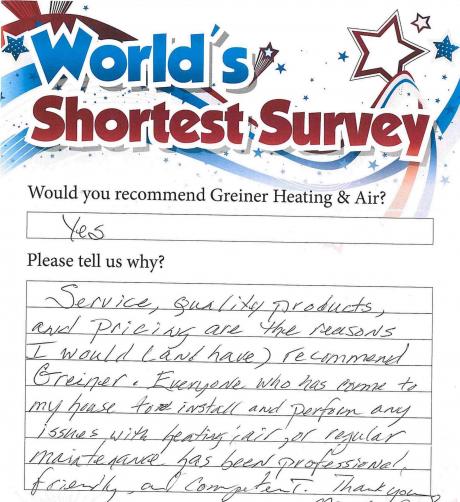 World's
Shortest Survey
Would you recommend Greiner Heating & Air?
Yes
Please tell us why?
Service, quality products,
and pricing are the reasons
I would (and have) recommend
Greiner. Everyone who has come to
my house to install and perform any
issues with heating, air, or regular
maintenance has been professional,
friendly, and competent. Thank you